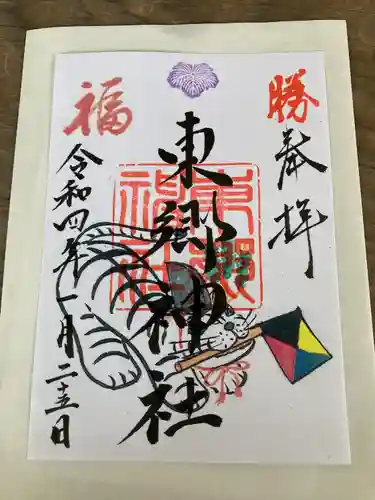 勝
奉拝
東郷神社
福
令和四年一月二十五日
東郷神社